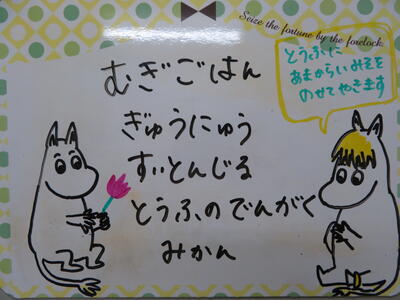 Seize the fortune by the forelock.
とうふに
あまからいみそを
のせてやきます
むぎごはん
ぎゅうにゅう
すいとんじる
とうふのでんがく
みかん